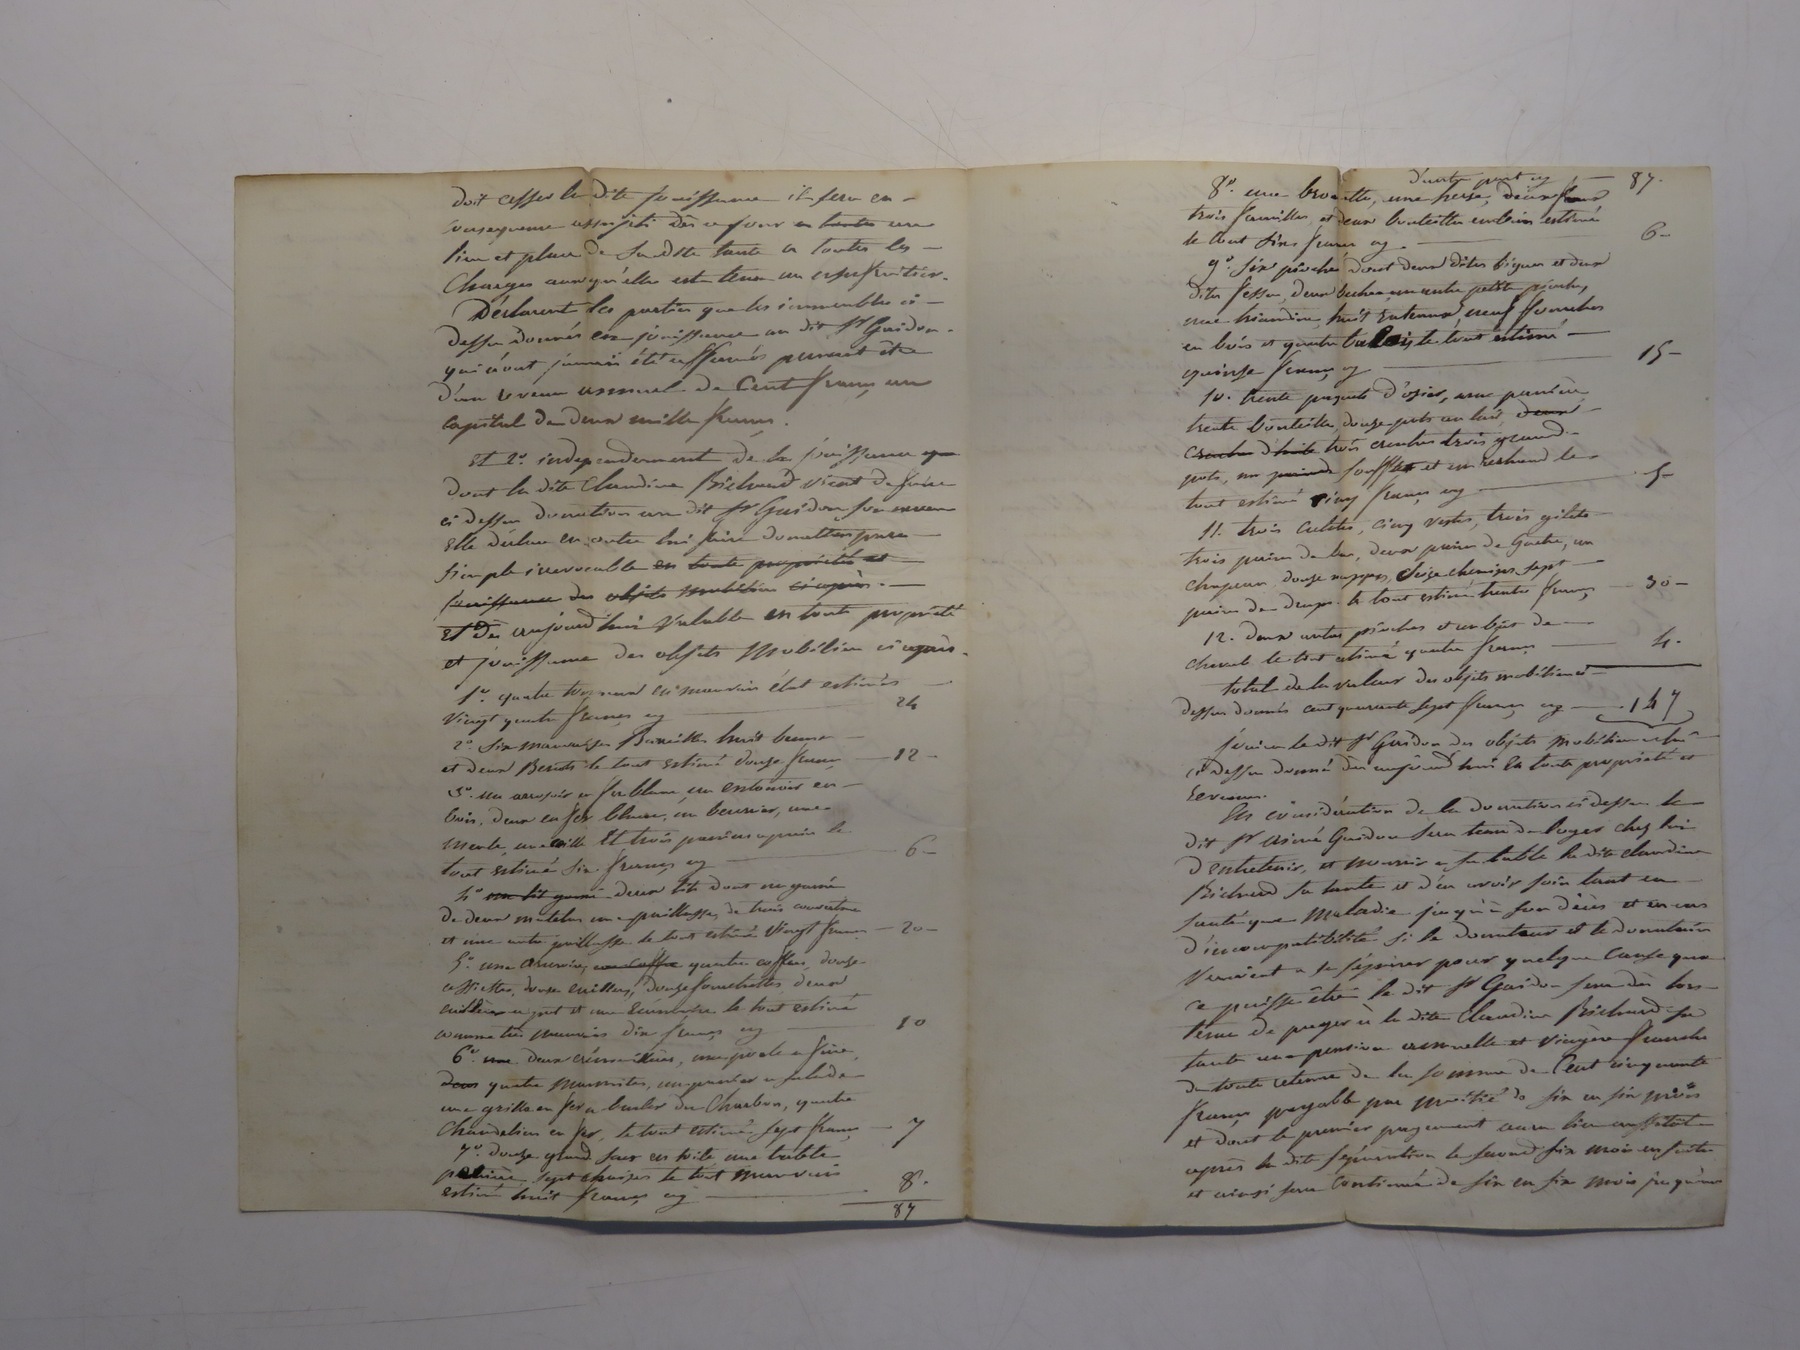 doit cesser la dite jouissance il sera en
conséquence assujeti dès ce jour en toutes au
lieu et place de sa dite tante a toutes les
Charges auxquelles est tenu un usufruitier.
Déclarent les parties que les immeubles ci
dessus donnés en jouissance au dit Sr Guidon
qui n'ont jamais été affermés peuvent être
d'un revenu annuel de Cent francs au
capital de deux mille francs.
Et 2° indépendamment de la jouissance que
dont la dite Claudine Bichard vient de faire
ci dessus donation au dit Sr Guidon son neveu
Elle déclare en outre lui faire donation pure
simple irrevocable en toute propriété et
jouissance des objets mobiliers ci après.
et Dès aujourd'hui valable en toute propriété
et jouissance des objets mobiliers ci après.
1° quatre tonneaux en mauvais état estimés
vingt quatre francs cy 24
2° six mauvaises Bareilles huit bennes
et deux le tout estimé douze francs 12
3° un arrosoir en fer blanc, un entonnoir en
bois, deux en fer blanc, un
et trois paniers le
tout estimé six francs cy 6
4° un lit garni deux lits dont un garni
de deux matelas une paillasse, de trois couvertures
et une autre paillasse le tout estimé vingt francs 20
5° une armoire, un coffre quatre coffres, douze
assiettes, douze cuillers, douze fourchettes, deux
cuillères a pot et une écumoire le tout estimé
comme très mauvais dix francs cy 10
6° une deux crémaillères, une poele a frire,
deux quatre marmites, un panier a salade
une grille en fer a bruler du Charbon, quatre
Chandeliers en fer, le tout estimé sept francs 7
7° douze grands sacs en toile une table
sept chaises le tout mauvais
estimé huit francs cy 8.
87
d'autre part cy 87.
8° une brouette, une herse, deux
trois faucilles, et deux bouteilles estimé
le tout six francs cy. 6
9° six pioches dont deux dites bigues et deux
dites deux beches, une autre petite pioche,
une huit neuf fourches
en bois et quatre balais, le tout estimé
quinze francs cy 15
10. trente paquets d'osier, une panière
trente bouteilles, douze pots au lait, deux
cruches d'huile trois cruches trois grands
pots, un soufflet et un réchaud le
tout estimé cinq francs cy 5
11. trois culottes, cinq vestes, trois gilets
trois paires de bas, deux paires de Guetre, un
chapeau douze nappes, Seize chemises, sept
paires de draps le tout estimé trente francs 30
12. deux autres pioches et un bat de
cheval le tout estimé quatre francs 4.
total de la valeur des objets mobiliers ci
dessus donnés cent quarante sept francs cy 147
jouira le dit Sr Guidon des objets mobiliers
ci dessus donné dès aujourd'hui en toute propriété et
En considération de la donation ci dessus le
dit Sr aimé Guidon sera tenu de loger chez lui
d'entretenir, et nourrir a sa table la dite Claudine
Bichard sa tante et d'en avoir soin tant en
santé que Maladie jusqu'à son décès et en cas
d'incompatibilité si le donateur et le donataire
venaient a se séparer pour quelque cause que
ce puisse être le dit Sr Guidon sera dès lors
tenu de payer à la dite Claudine Bichard sa
tante une pension annuelle et viagère franche
de toute retenue de la somme de Cent cinquante
francs payable par moitié de six en six mois
et dont le premier payement aura lieu aussitôt
après la dite séparation le second six mois ensuite
et ainsi sera Continué de six en six mois jusqu'au